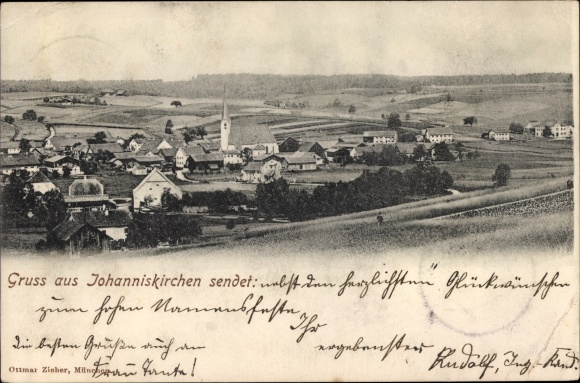 Gruss aus Johanniskirchen sendet: nebst den herzlichsten Glückwünschen
zum hohen Namensfeste
Ihr
Die besten Grüße auch an
ergebenster Rudolf, Ing. Kand.
Ottmar Zieher, München
Frau Tante!